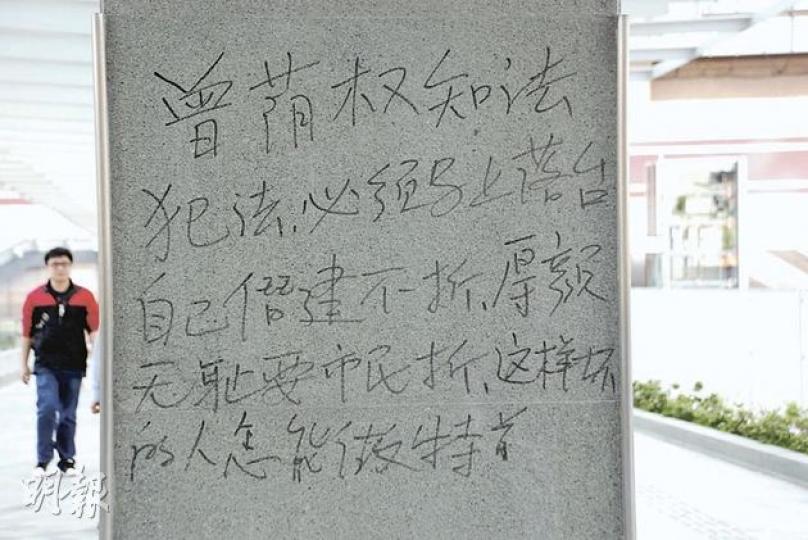 曾荫权知法
犯法、必须马上落台
自己僭建不折、厚颜
无耻要市民折、这样坏
的人怎能做特首
明報